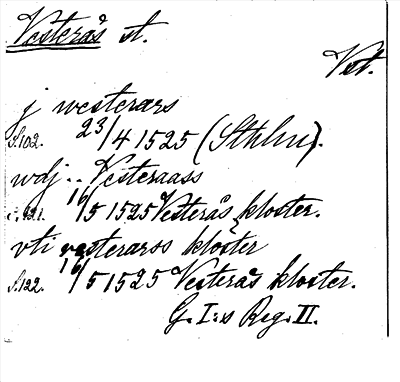 Vesterås st.
Vst.
j westerars
s.102. 23/4 1525 (Sthlm).
wdj .. Vesteraass
s.121. 16/5 1525 Vesterås kloster.
vti vesterarss kloster
s.122. 16/5 1525 Vesterås kloster.
G. I:s Reg. II.